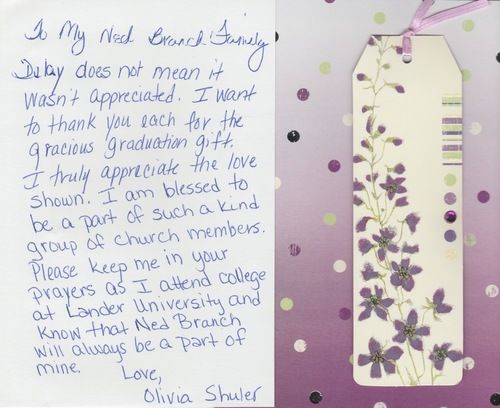 To My Ned Branch Family
Delay does not mean it
wasn't appreciated. I want
to thank you each for the
gracious graduation gift.
I truly appreciate the love
shown. I am blessed to
be a part of such a kind
group of church members.
Please keep me in your
prayers as I attend college
at Lander University and
know that Ned Branch
will always be a part of
mine. Love,
Olivia Shuler